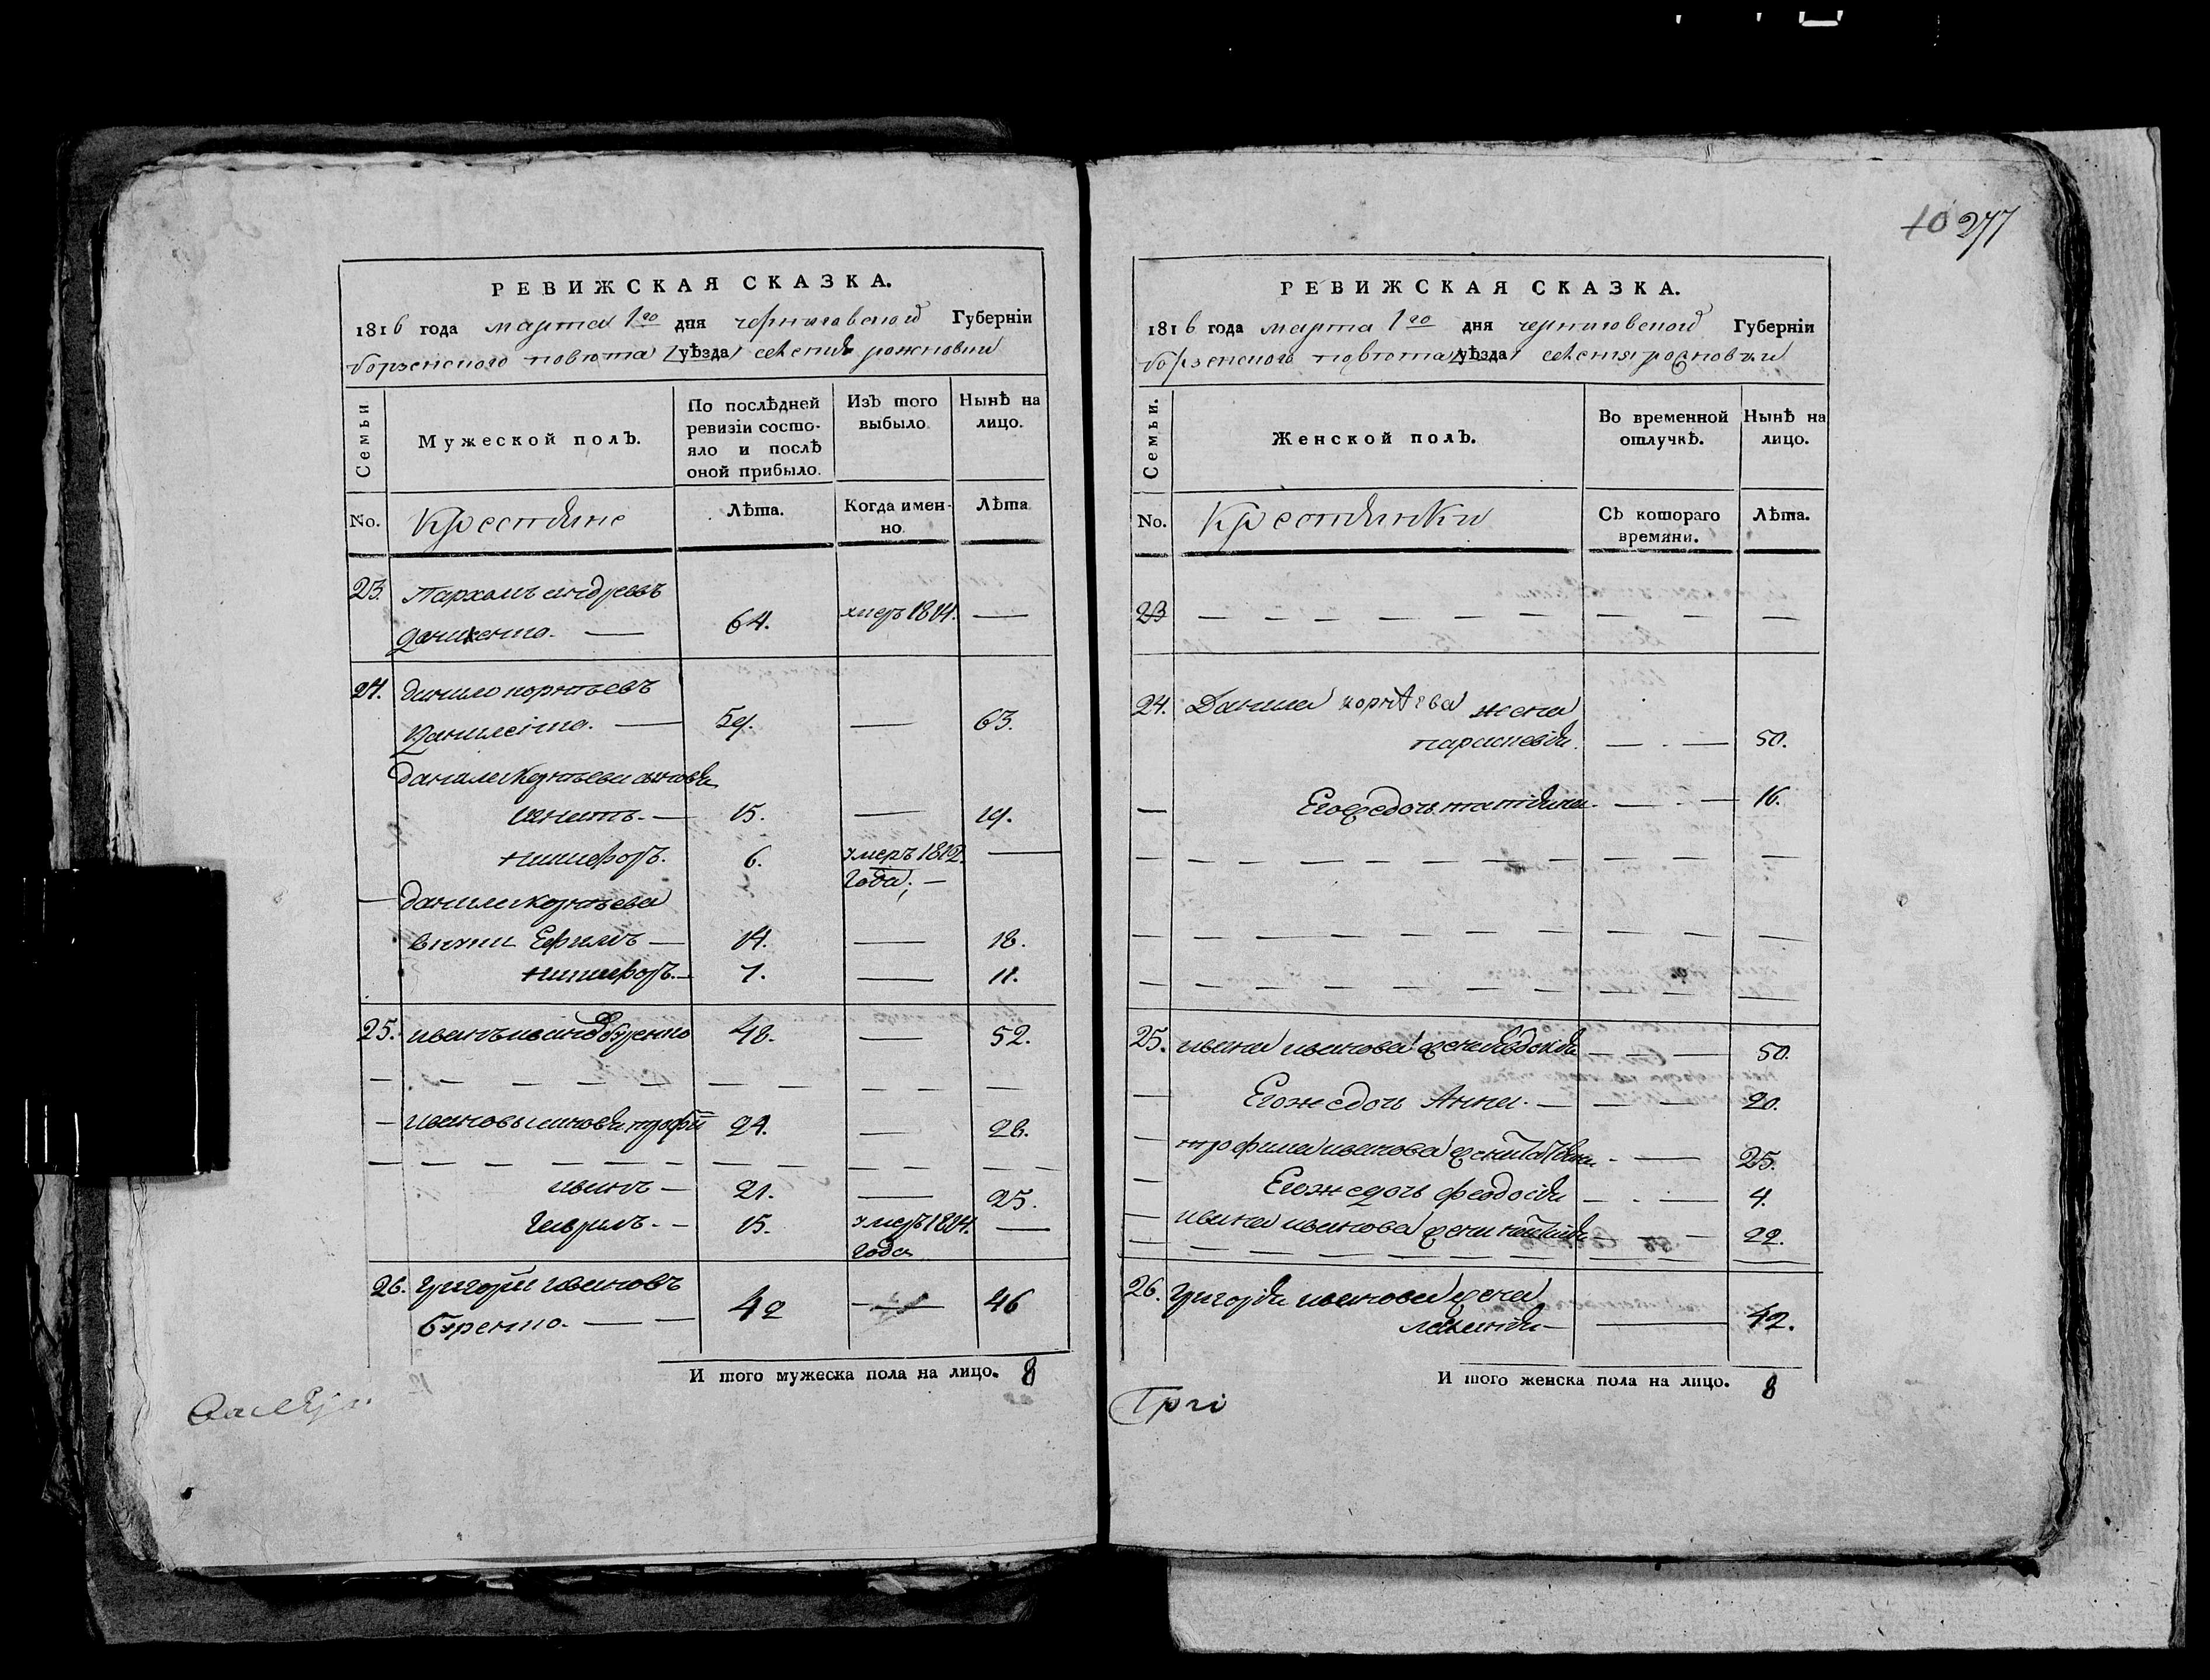 10 277
РЕВИЖСКАЯ СКАЗКА.
1816 года марта 1го дня черниговской Губерніи
борзенского повѣта /уѣзда/ селенія рожновки
Семьи
Мужеской полъ.
По послѣдней ревизіи состо-
яло и послѣ
оной прибыло.
Изъ того
выбыло.
Нынѣ на
лицо.
No.
Крестьяне
Лѣта.
Когда имен-
но.
Лѣта
23. Пархомъ андреевъ
64. умеръ 1814. —
24. данило корнѣевъ
Даниленко. — 59. — 63.
данила Корнѣева сыновья
игнатъ. — 15. — 19.
никифоръ. 6. умеръ 1812. —
года; —
— данила Корнѣева
внуки Ефимъ — 14. — 18.
никифоръ. — 7. — 11.
25. иванъ ивановъ буренко 48. — 52.
— ивановы сыновья трофи 24. — 28.
иванъ — 21. — 25.
гаврило. — 15. умеръ 1814. —
года
26. григорій ивановъ
буренко. — — 42 — 46
И того мужеска пола на лицо. 8
РЕВИЖСКАЯ СКАЗКА.
1816 года марта 1го дня черниговской Губерніи
борзенского повѣта /уѣзда/ селенія рожновки
Семьи.
Женской полъ.
Во временной
отлучкѣ.
Нынѣ на
лицо.
No.
Крестьянки
Съ котораго
времяни.
Лѣта.
23 — — — — — — — — —
24. Данила корнѣева жена
параскевія. — . — 50.
— Егожедочь татіяна. — . — 16.
25. ивана иванова жена евдокія — — — 50.
— Егожедочь Анна. — — — 20.
— трофима иванова жена 25.
— Егожедочь феодосія — . — 4.
— ивана иванова жена 22.
26. григорія иванова жена
— 42.
И того женска пола на лицо. 8
Григ